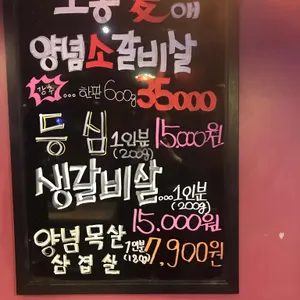 양념소갈비살
강추... 한판 600g 35000
등심 1인분 15.000원
(200g)
생갈비살... 1인분
(200g)
15.000원
양념목살 1인분 7.900원
삼겹살 (180g)